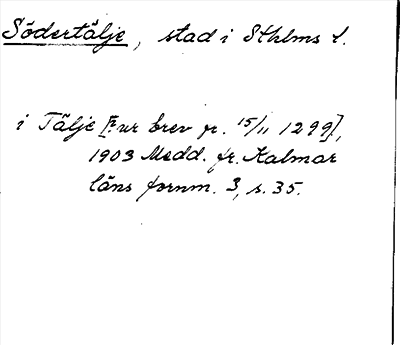 Södertälje, stad i Sthlms l.
i Tälje [ur brev fr. 15/11 1299],
1903 Medd. fr. Kalmar
läns fornm. 3, s. 35.